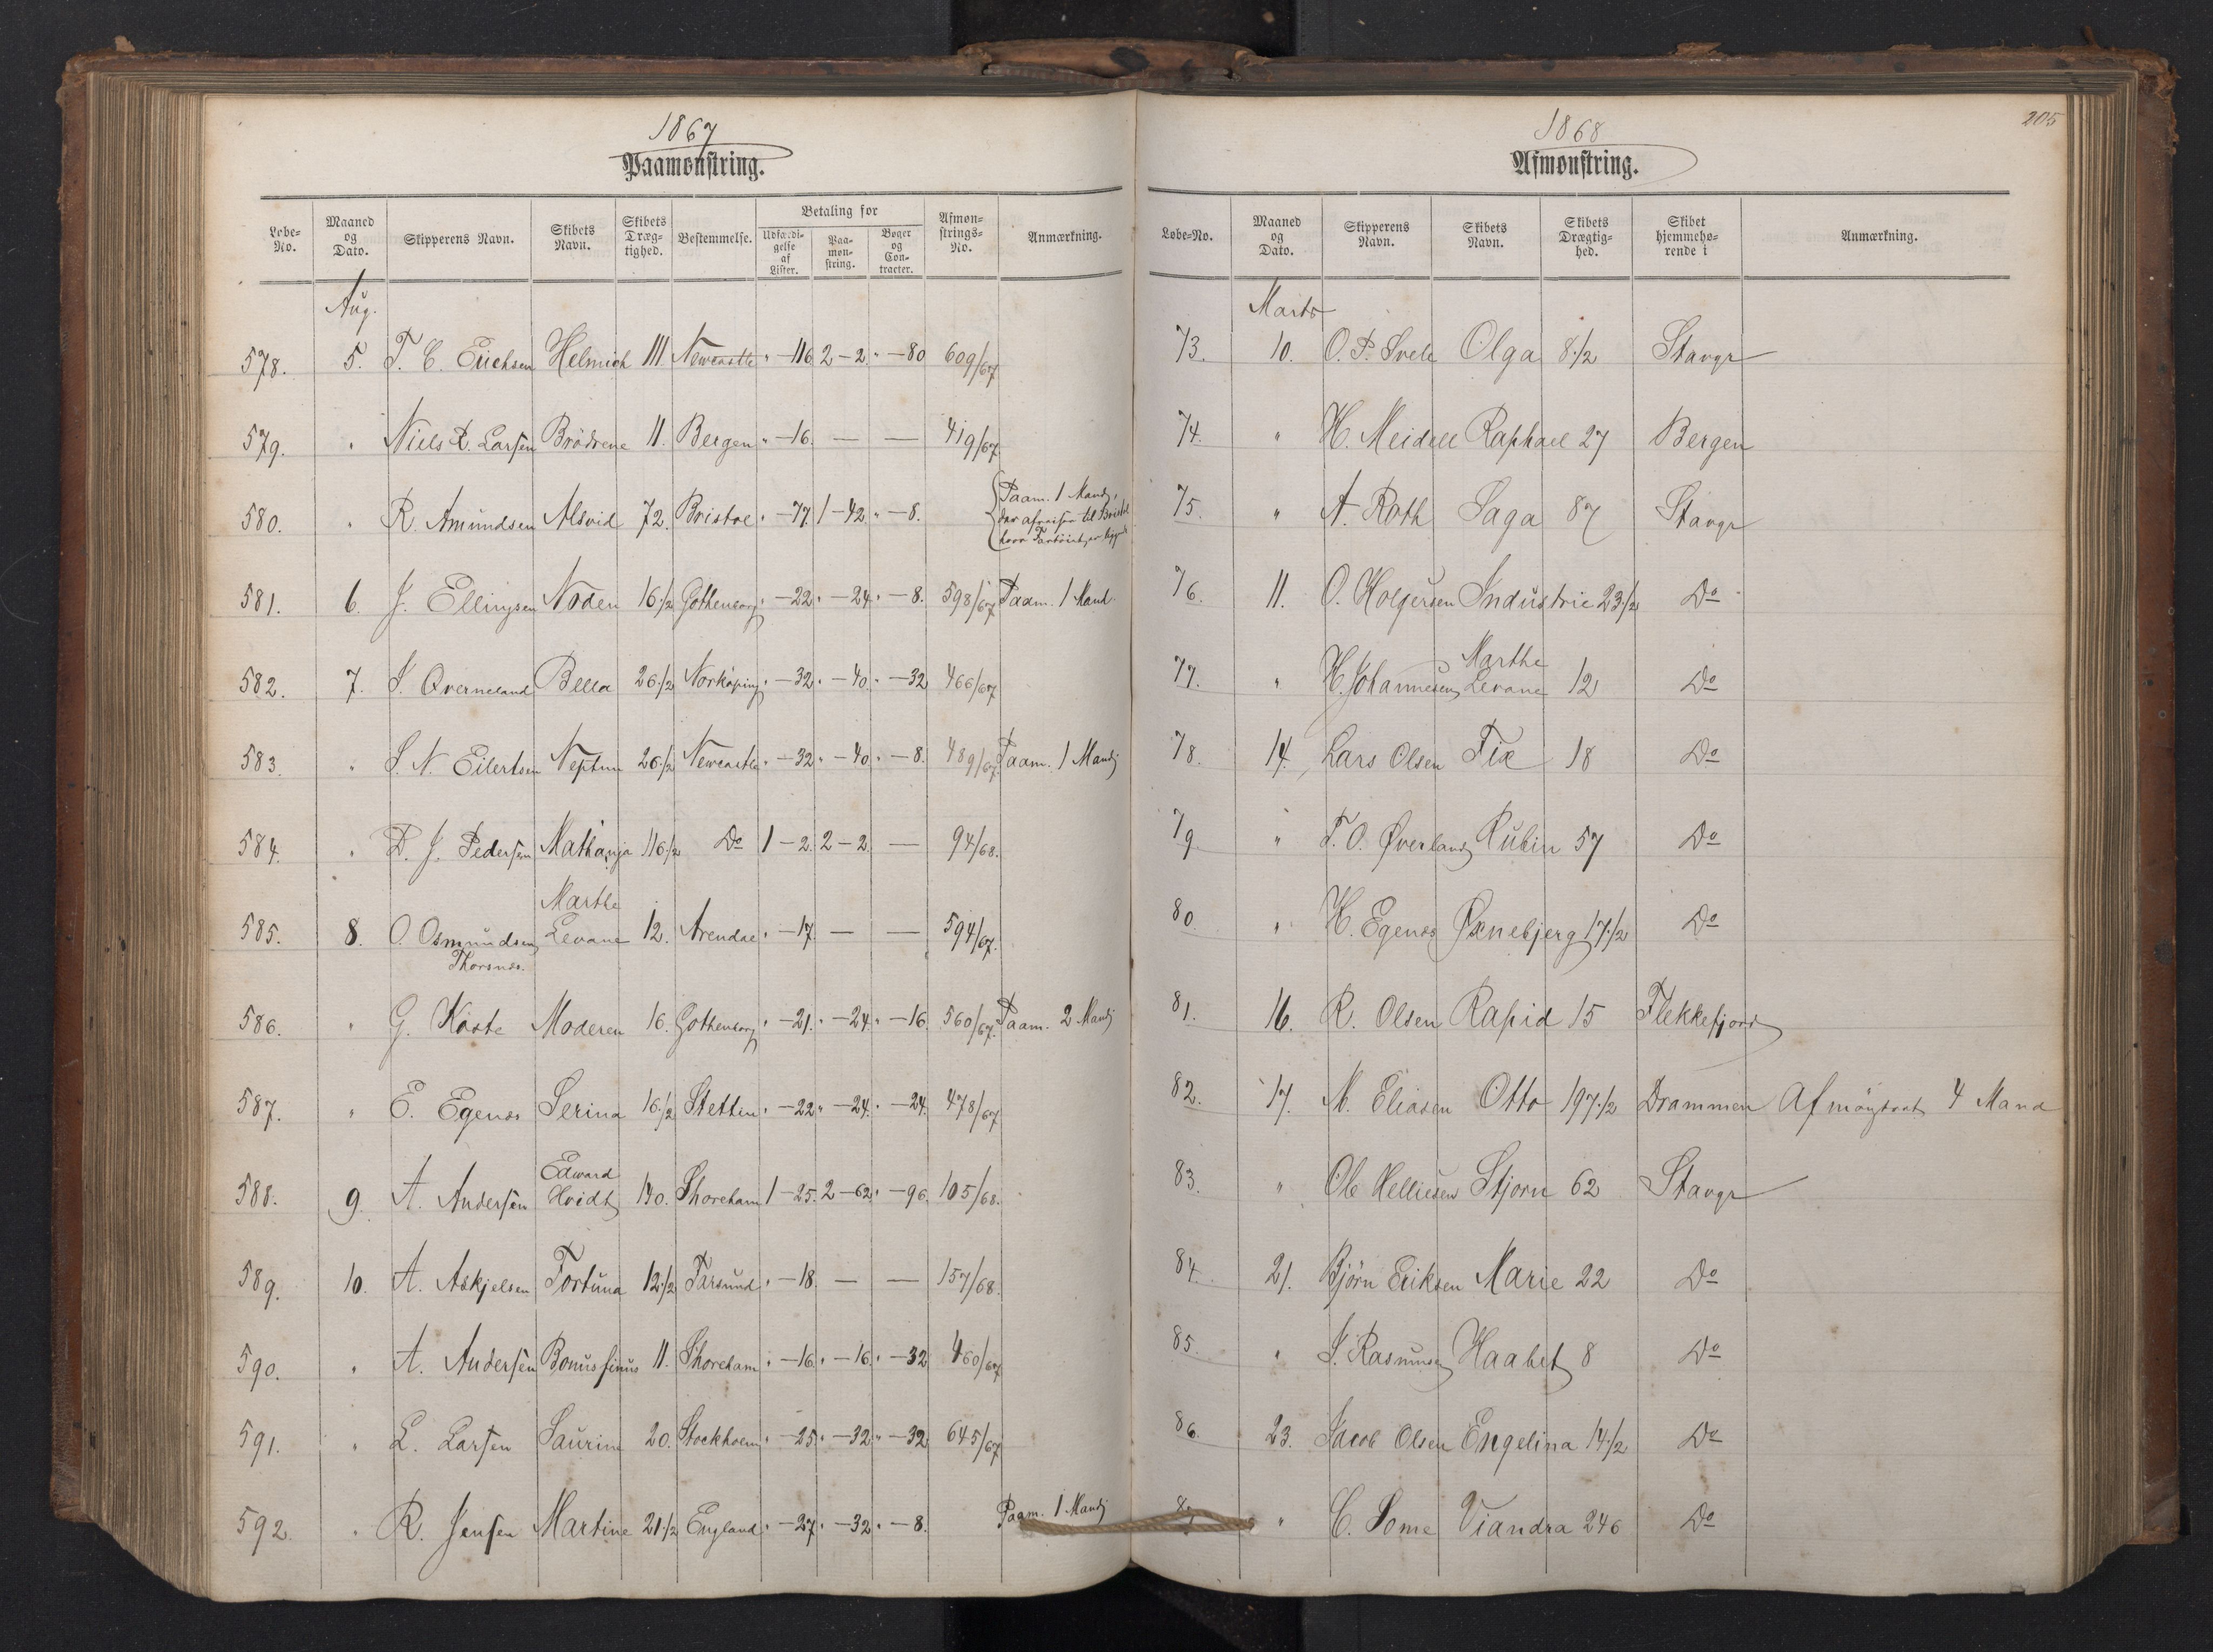 1867
Paamønstring.
Løbe-No. | Maaned og Dato. | Skipperens Navn. | Skibets Navn. | Skibets Dræg-tighed. | Bestemmelse. | Betaling for Udfærdi-gelse af Lister. | Paa-møn-string. | Bøger og Con-tracter. | Afmøn-strings-No. | Anmærkning.
Aug.
578. 5. T. C. Erichsen Helmich 111 Newcastle " - 116 2 - 2 " - 80 609/67
579. " Niels R. Larsen Brödrene 11. Bergen " - 16. — — 419/67
580. " R. Amundsen Alsvid 72. Bristol " - 77. 1 - 42. " - 8. Paam. 1 Mand, der afreiser til Bristol hvor Fartöiet er
581. 6. J. Ellingsen Noden 16 1/2 Gothenborg " - 22. " - 24. " - 8. 598/67 Paam. 1 Mand
582. 7. S. Qverneland Bella 26 1/2 Norköping " - 32. " - 40. " - 32 466/67
583. " S. N. Eilertsen Neptun 26 1/2 Newcastle " - 32 " - 40. " - 8. 489/67. Paam. 1 Mand
584. " D. J. Pedersen Mathanja 116 1/2 Do 1 - 2. 2 - 2. — 94/68.
585. 8. O. Osmundsen Thorsnes. Marthe Levane 12. Arendal " - 17. — — 594/67.
586. " G. Koste Moderen 16. Gothenborg " - 21. " - 24. " - 16. 560/67. Paam. 2 Mand
587. " E. Egenes Serina 16 1/2 Stettin " - 22 " - 24. " - 24. 478/67
588. 9. A. Andersen Edward Hvidt 190. Shoreham 1 - 25. 2 - 62. " - 96. 105/68.
589. 10. A. Askjelsen Fortuna 12 1/2 Farsund " - 18. — — 157/68.
590. " A. Andersen Bonus finus 11. Shoreham " - 16. " - 16. " - 32 460/67
591. " L. Larsen Saurine 20. Stockholm " - 25. " - 32 " - 32 645/67
592. " R. Jensen Martine 21 1/2 England " - 27. " - 32. " - 8. Paam. 1 Mand
205
1868
Afmønstring.
Løbe-No. | Maaned og Dato. | Skipperens Navn. | Skibets Navn. | Skibets Drægtig-hed. | Skibet hjemmehø-rende i | Anmærkning.
Marts
73. 10. O. P. Svele Olga 8 1/2 Stavgr
74. " H. Meidell Raphael 27 Bergen
75. " A. Roth Saga 87 Stavgr
76. 11. O. Holgersen Industrie 23 1/2 Do
77. " H. Johannesen Marthe Levane 12 Do
78. 14. Lars Olsen Fix 18 Do
79. " T. O. Øverland Rubin 57 Do
80. " H. Egenes Øxnebjerg 17 1/2 Do
81. 16. R. Olsen Rapid 15 Flekkefjord
82. 17. M. Eliasen Otto 197 1/2 Drammen Afmønstret 4 Mand
83. " Ole Helliesen Stjorn 62 Stavgr
84. 21. Bjørn Eriksen Marie 22 Do
85. " J. Rasmusen Haabet 8 Do
86. 23. Jacob Olsen Engelina 14 1/2 Do
87 " C. Some Viandra 246 Do